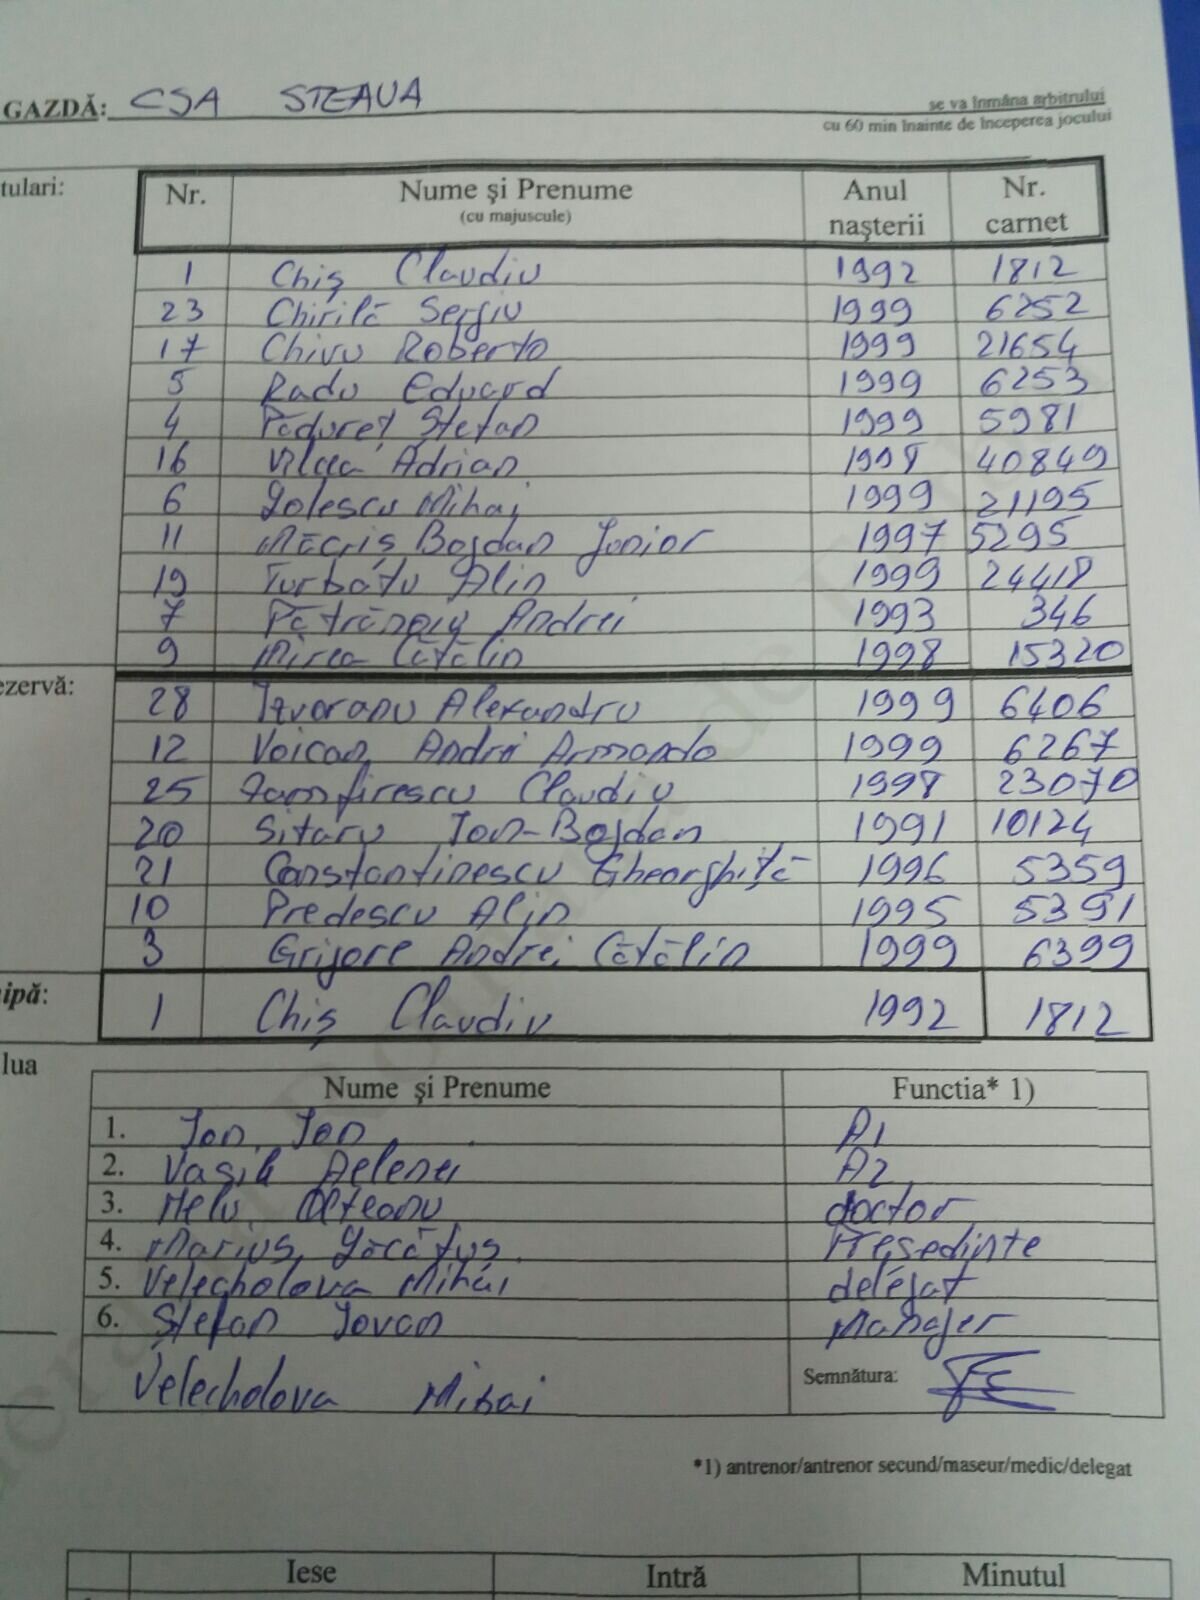 GAZDĂ: CSA STEAUA
se va înmâna arbitrului
cu 60 min înainte de începerea jocului
tulari:
Nr. Nume și Prenume (cu majuscule) Anul nașterii Nr. carnet
1 Chiș Claudiu 1992 1812
23 Chirilă Sergiu 1999 6252
17 Chivu Roberto 1999 21654
5 Radu Eduard 1999 6253
4 Pădureț Stefan 1999 5981
16 Vîlcea Adrian 1998 40849
6 Golescu Mihai 1999 21195
11 Măcriș Bogdan Junior 1997 5295
19 Turbatu Alin 1999 24418
7 Andrei 1993 346
9 Mirea Cătălin 1998 15320
ezervă:
28 Izvoranu Alexandru 1999 6406
12 Voican Andrei Armando 1999 6267
25 Zamfirescu Claudiu 1998 23070
20 Sitaru Ion-Bogdan 1991 10124
21 Constantinescu Gheorghiță 1996 5359
10 Predescu Alin 1995 5391
3 Grigore Andrei Cătălin 1999 6399
ipă: 1 Chiș Claudiu 1992 1812
lua
Nume și Prenume Functia* 1)
1. Ion Ion A1
2. Vasile Aelenei A2
3. Nelu Olteanu doctor
4. Marius Lăcătuș Președinte
5. Velecholova Mihai delegat
6. Ștefan Iovan Manager
Velecholova Mihai Semnătura:
*1) antrenor/antrenor secund/maseur/medic/delegat
Iese Intră Minutul